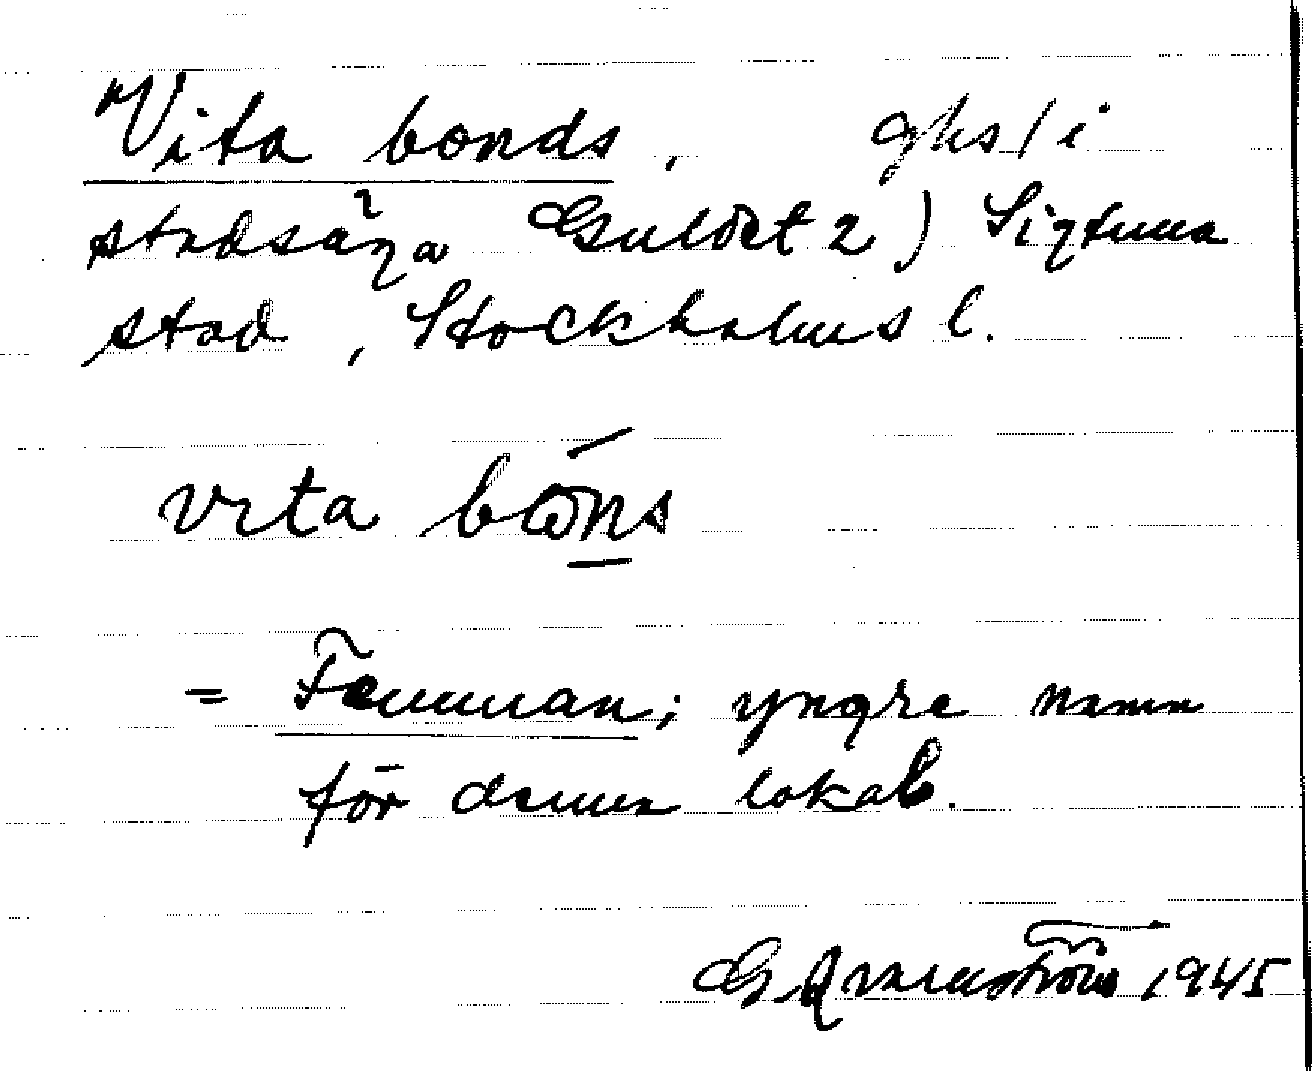 Vita bonds, ghs/i
stadsäga Guldet 2) Sigtuna
stad, Stockholms l.
vita bons
= Femman; yngre namn
för denna lokal.
G Qvarnström 1945